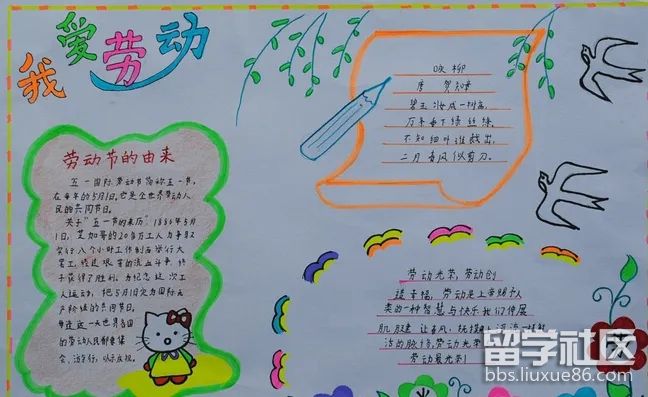 我爱劳动
劳动节的由来
五一国际劳动节简称五一节,
在每年的5月1日,它是全世界劳动人
民的共同节日。
关于"五一节的来历":1886年5月
1日,芝加哥的20多万工人为争取
实行八小时工作制而举行大
罢工,经过艰苦的流血斗争,终
于获得了胜利。为纪念这次工
人运动,把5月1日定为国际无
产阶级的共同节日。
每逢这一天世界各国
的劳动人民都要集
会、游行,以示庆祝。
咏柳
唐 贺知章
碧玉妆成一树高,
万条垂下绿丝绦,
不知细叶谁裁出,
二月春风似剪刀。
劳动光荣,劳动创
造幸福,劳动是上帝赐予人
类的一种智慧与快乐我们伸展
肌腱让春风,抚摸
活的脉络,劳动光荣
劳动最光荣!
留学社区
bbs.liuxue86.com